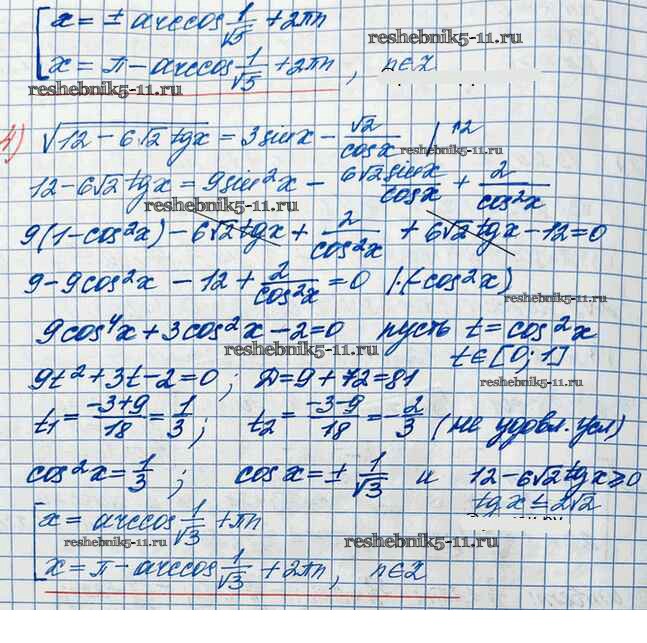 x = ± arccos 1/√5 + 2πn
reshebnik5-11.ru
x = π - arccos 1/√5 + 2πn, n∈Z
reshebnik5-11.ru
4) √(12 - 6√2 tgx) = 3 sinx - √2/cosx |↑2
reshebnik5-11.ru
12 - 6√2 tgx = 9 sin²x - 6√2 sinx/cosx + 2/cos²x
reshebnik5-11.ru
reshebnik5-11.ru
9(1-cos²x) - 6√2 tgx + 2/cos²x + 6√2 tgx - 12 = 0
9 - 9cos²x - 12 + 2/cos²x = 0 |·(-cos²x)
reshebnik5-11.ru
9cos⁴x + 3cos²x - 2 = 0 пусть t = cos²x
reshebnik5-11.ru
t∈[0;1]
9t² + 3t - 2 = 0; D = 9 + 72 = 81
reshebnik5-11.ru
t₁ = (-3+9)/18 = 1/3; t₂ = (-3-9)/18 = -2/3 (не удовл. усл)
cos²x = 1/3; cosx = ± 1/√3 и 12 - 6√2 tgx ≥ 0
tgx ≤ √2
x = arccos 1/√3 + πn
reshebnik5-11.ru
reshebnik5-11.ru
x = π - arccos 1/√3 + 2πn, n∈Z